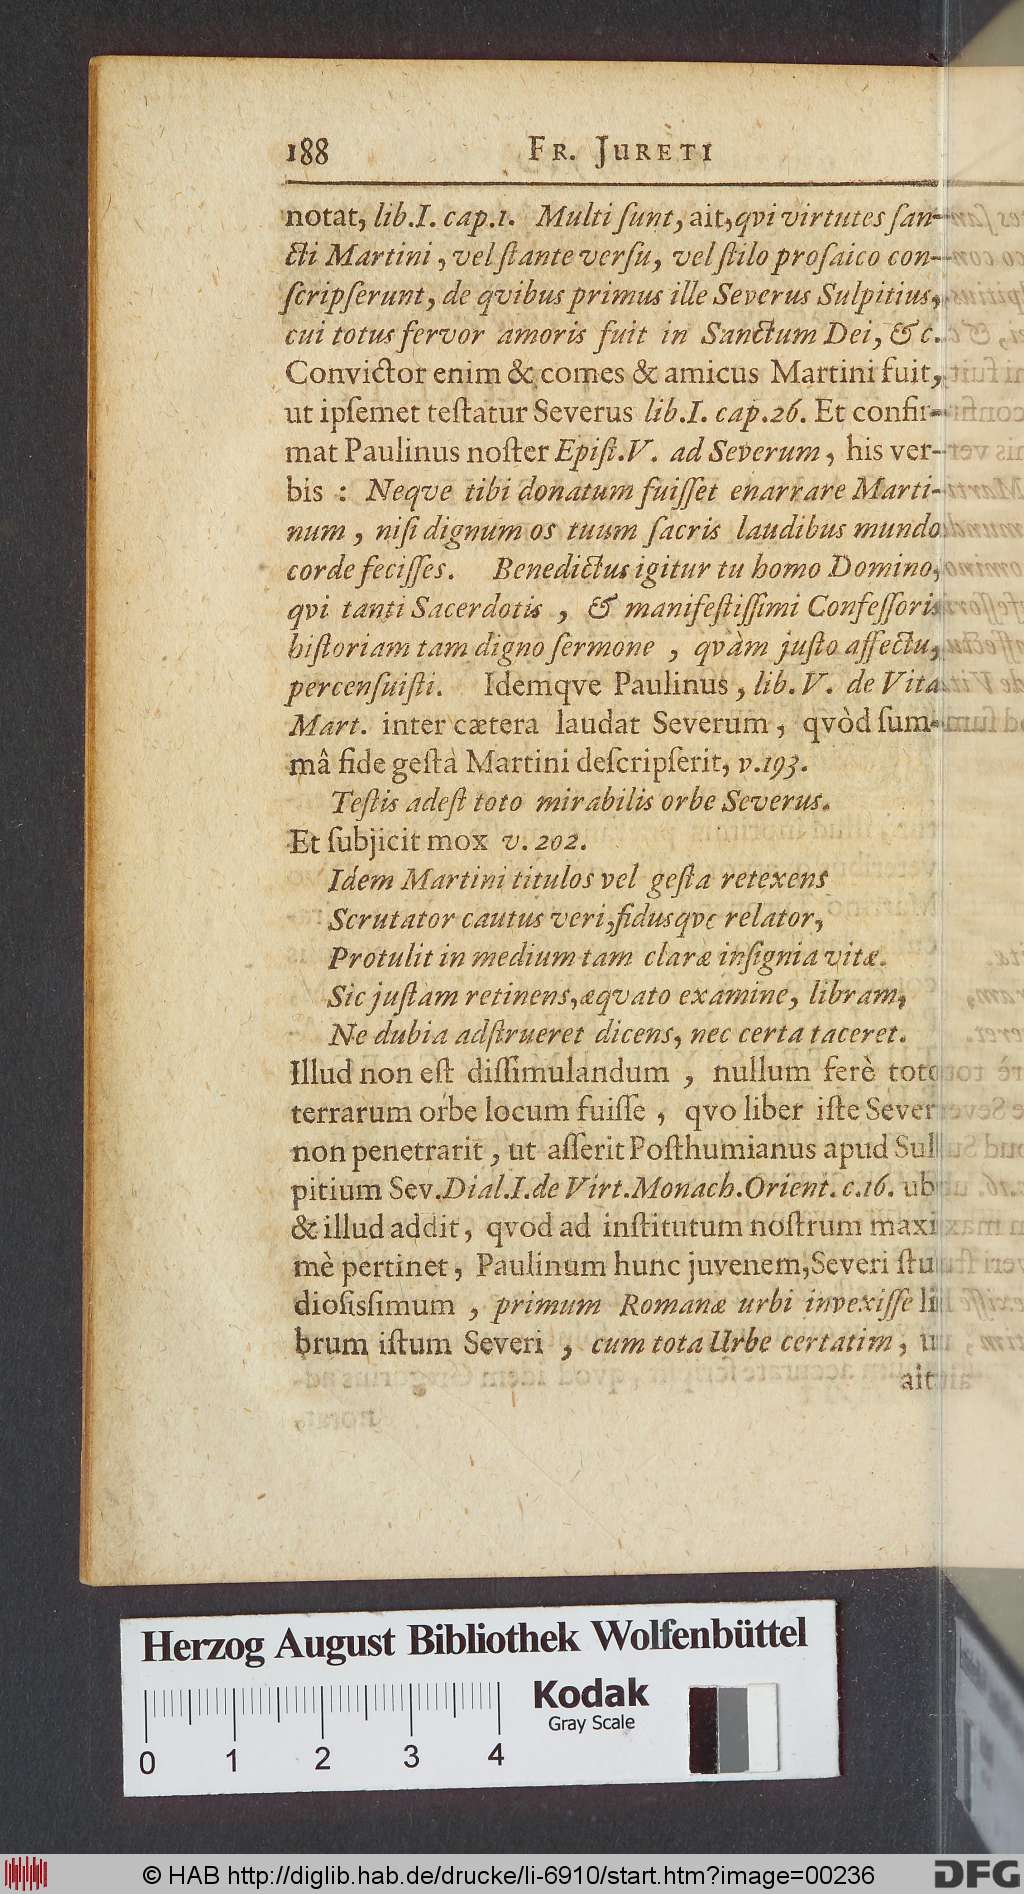 188 FR. JURETI
notat, lib.I. cap.1. Multi ſunt, ait, qvi virtutes ſan-
cti Martini, vel ſtante verſu, vel ſtilo proſaico con-
ſcripſerunt, de qvibus primus ille Severus Sulpitius,
cui totus fervor amoris fuit in Sanctum Dei, & c.
Convictor enim & comes & amicus Martini fuit,
ut ipſemet teſtatur Severus lib.I. cap.26. Et confir-
mat Paulinus noſter Epiſt.V. ad Severum, his ver-
bis : Neqve tibi donatum fuiſſet enarrare Marti-
num, niſi dignum os tuum ſacris laudibus mundo
corde feciſſes. Benedictus igitur tu homo Domino,
qvi tanti Sacerdotis, & manifeſtiſſimi Confeſſoris
hiſtoriam tam digno ſermone, qvàm juſto affectu,
percenſuiſti. Idemqve Paulinus, lib. V. de Vita
Mart. inter cætera laudat Severum, qvòd ſum-
mâ fide geſta Martini deſcripſerit, v.193.
Teſtis adeſt toto mirabilis orbe Severus.
Et ſubjicit mox v. 202.
Idem Martini titulos vel geſta retexens
Scrutator cautus veri, fidusqve relator,
Protulit in medium tam claræ inſignia vitæ.
Sic juſtam retinens, æqvato examine, libram,
Ne dubia adſtrueret dicens, nec certa taceret.
Illud non eſt diſſimulandum, nullum ferè toto
terrarum orbe locum fuiſſe, qvo liber iſte Sever
non penetrarit, ut aſſerit Poſthumianus apud Sul
pitium Sev. Dial.I. de Virt. Monach. Orient. c.16. ub
& illud addit, qvod ad inſtitutum noſtrum maxi
mè pertinet, Paulinum hunc juvenem, Severi ſtu
dioſisſimum, primum Romanæ urbi invexiſſe li
brum iſtum Severi, cum tota Urbe certatim, u
ait
Herzog August Bibliothek Wolfenbüttel
Kodak
Gray Scale
0 1 2 3 4
© HAB http://diglib.hab.de/drucke/li-6910/start.htm?image=00236
DFG